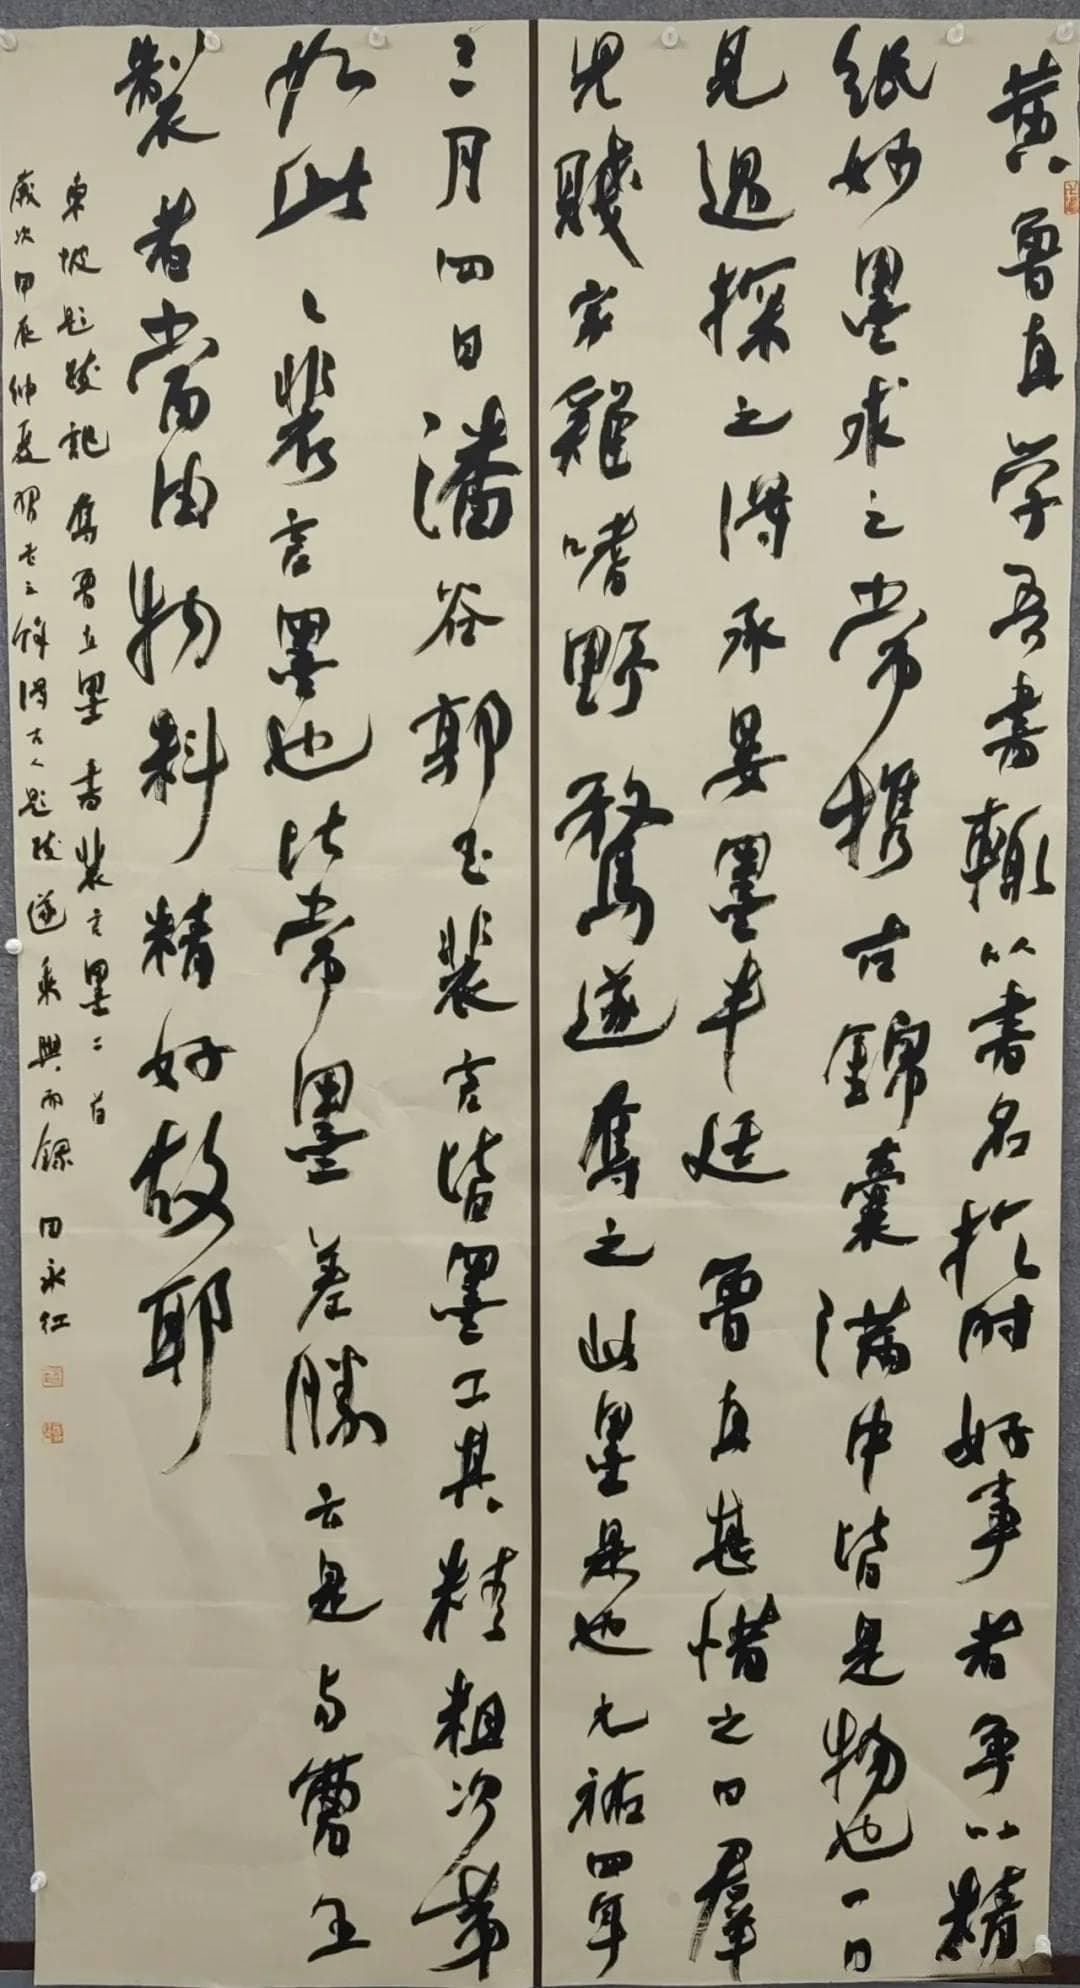 黄鲁直学吾书辄以书名於时好事者争以精
纸妙墨求之常携古锦囊满中皆是物也一日
见过探之得承晏墨半廷鲁直甚惜之曰群
児贱家雞嗜野鹜遂夺之此墨是也元祐四年
三月四日潘谷郭玉裴言皆墨工其精粗次第
如此々裴言墨也比常墨差勝云是与曹王
製者當由物料精好故耶
東坡题跋記奪魯直墨書裴言墨二首
歲次甲辰仲夏習書之餘得古人题跋遂乘興而錄田永红